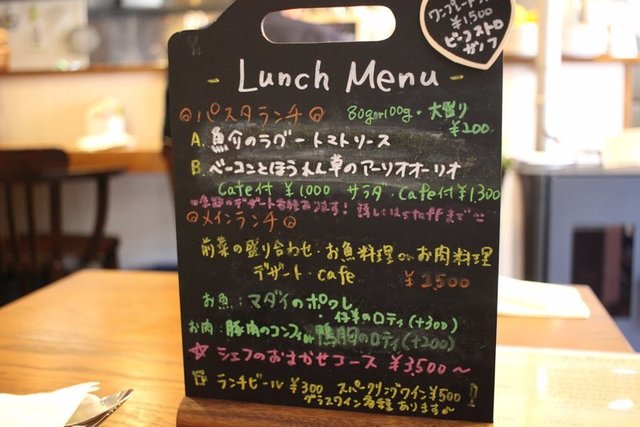 ワンプレート
¥1500
ビーフストロ
ガノフ
Lunch Menu
パスタランチ 80gor100g・大盛り
¥200
A. 魚介のラグートマトソース
B. ベーコンとほうれん草のアーリオオーリオ
Cafe付 ¥1,000 サラダ・Cafe付 ¥1,300
デザート あります! 詳しくはstaffまで
メインランチ
前菜の盛り合わせ・お魚料理 or お肉料理
デザート・cafe ¥2,500
お魚:マダイのポワレ
・仔羊のロティ(+300)
お肉:豚肉のコンフィor鴨胸のロティ(+200)
☆シェフのおまかせコース ¥3,500〜
ランチビール ¥300 スパークリングワイン¥500
グラスワイン各種あります♪